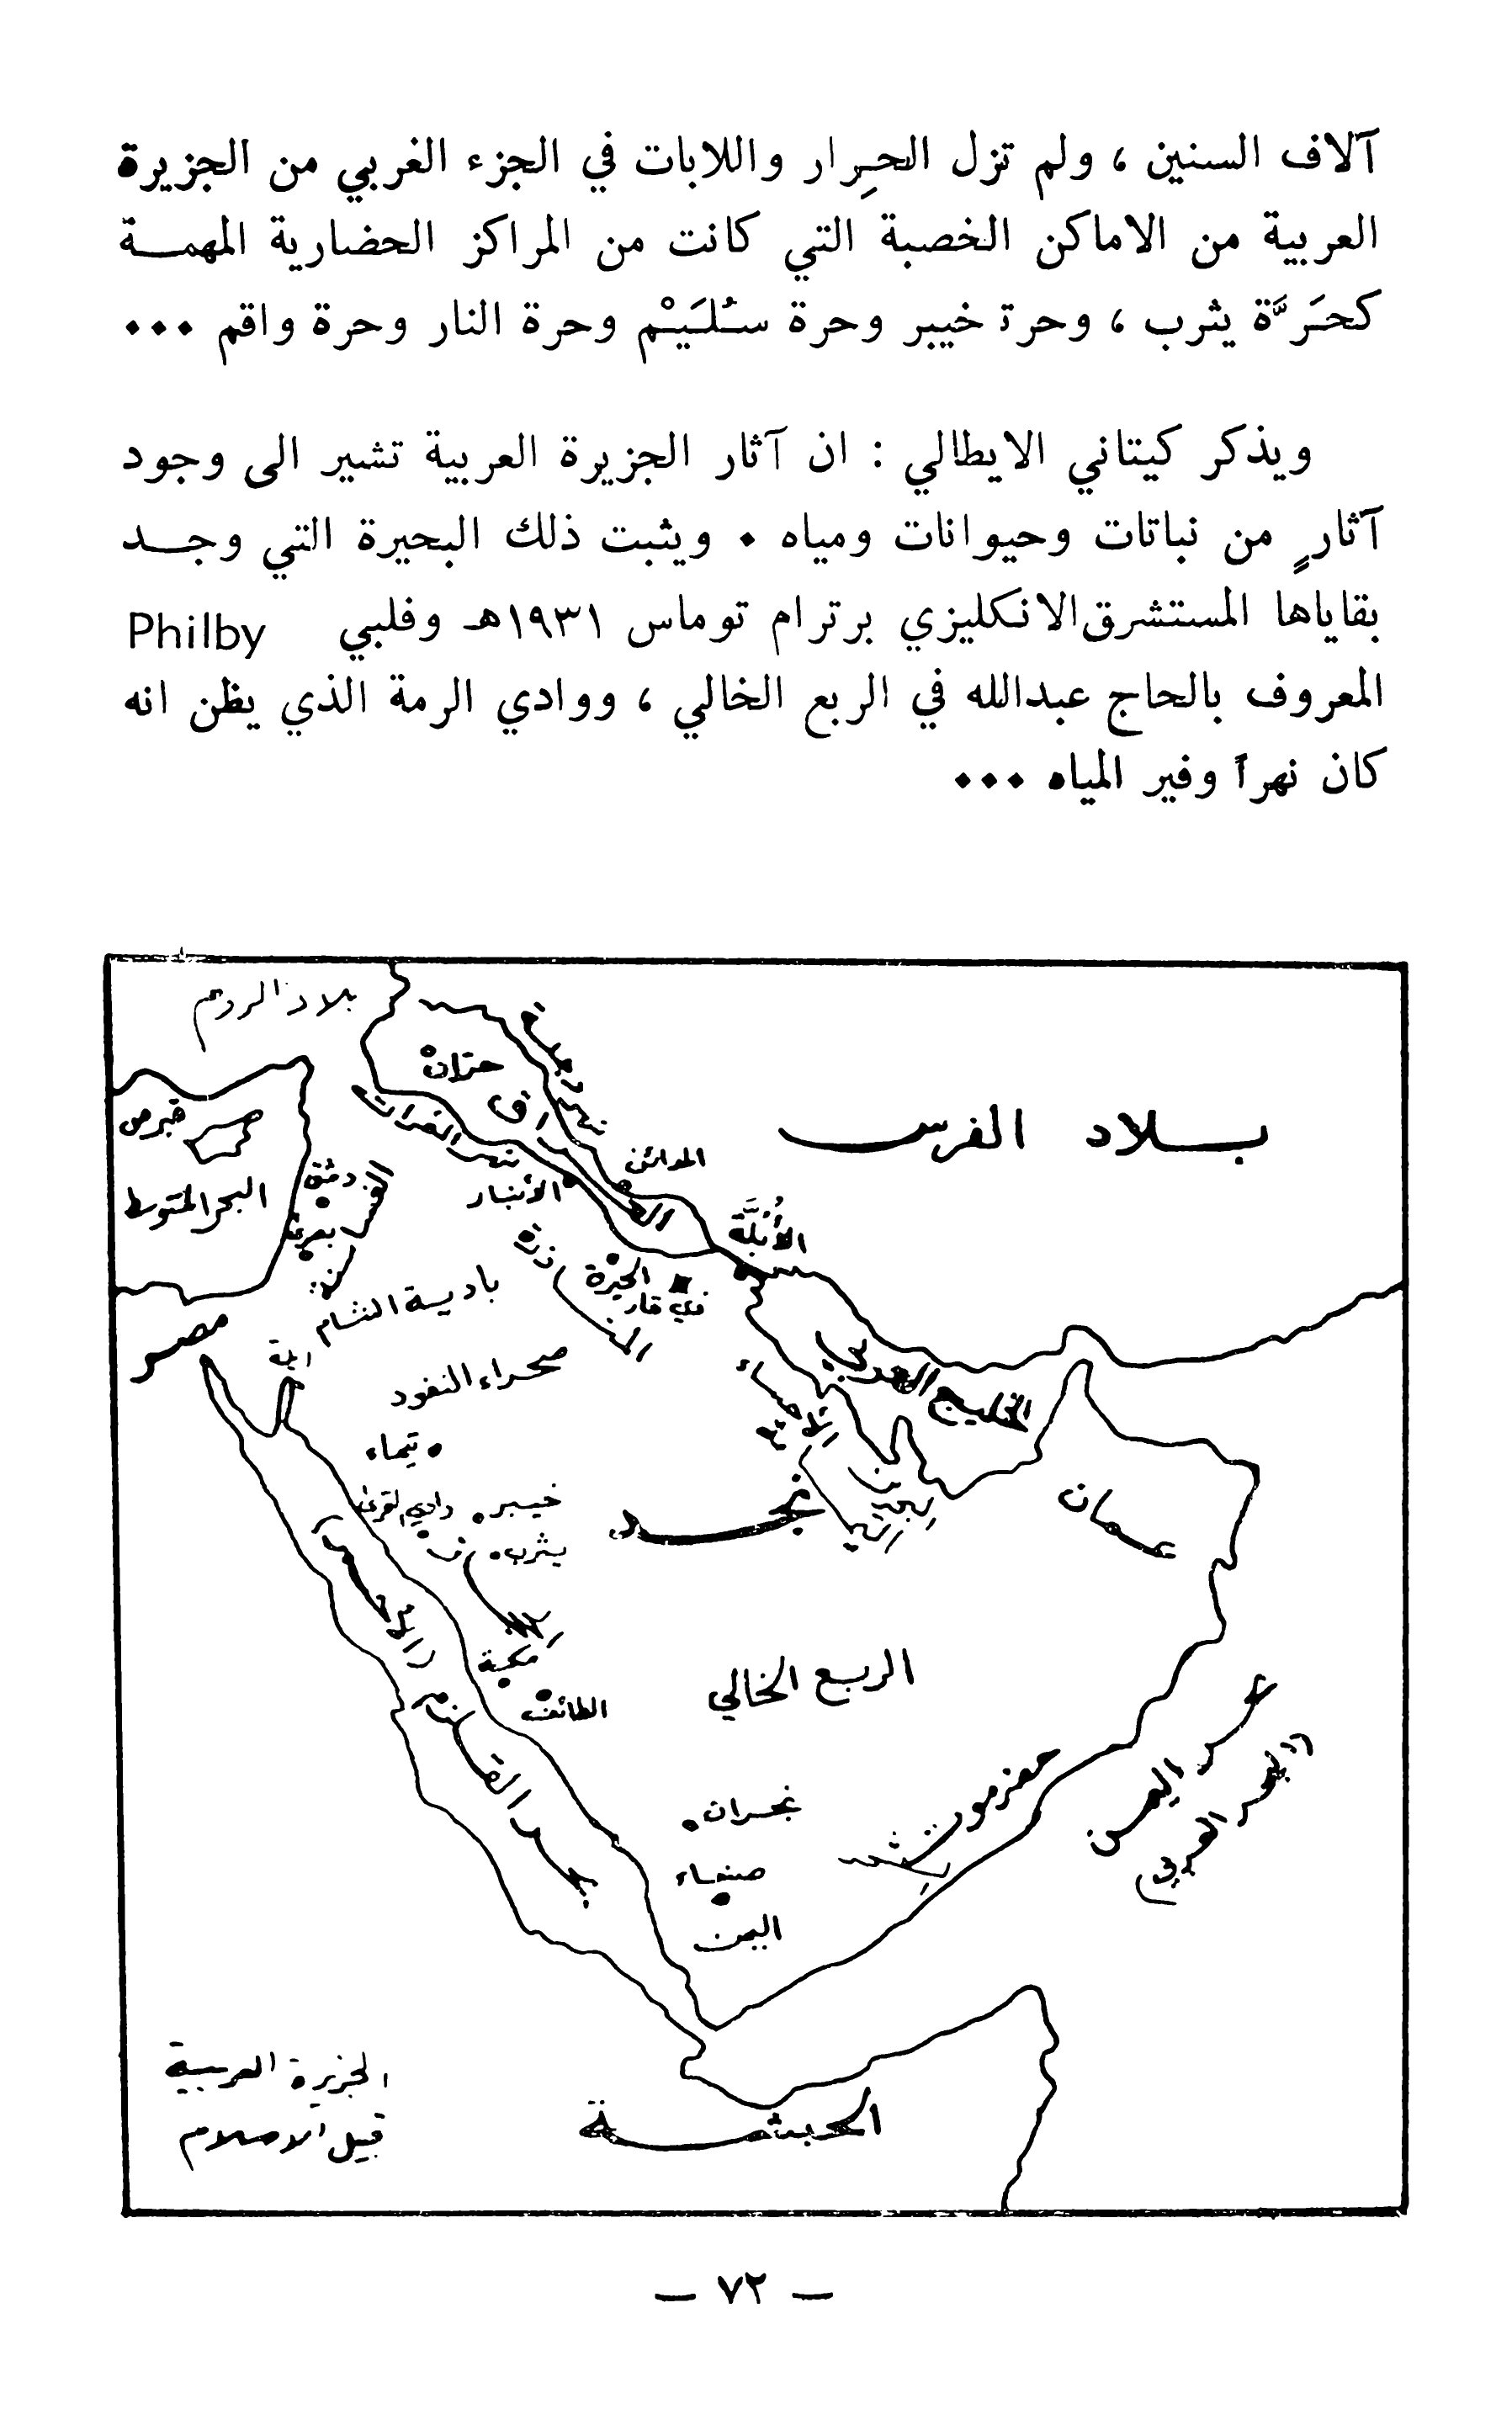 آلاف السنين ، ولم تزل الحِرار واللابات في الجزء الغربي من الجزيرة
العربية من الاماكن الخصبة التي كانت من المراكز الحضارية المهمـــة
كحَرَّة يثرب ، وحرة خيبر وحرة سُلَيْم وحرة النار وحرة واقم ٠٠٠
ويذكر كيتاني الايطالي : ان آثار الجزيرة العربية تشير الى وجود
آثارٍ من نباتات وحيوانات ومياه ٠ ويثبت ذلك البحيرة التي وجــد
بقاياها المستشرق الانكليزي برترام توماس ١٩٣١هـ وفلبي Philby
المعروف بالحاج عبدالله في الربع الخالي ، ووادي الرمة الذي يظن انه
كان نهراً وفير المياه ٠٠٠
بلاد الروم
حران
نهر دجلة
نهر الفرات
العراق
بــلاد الفرس
قبرص
البحر المتوسط
دمشق
بصرى
المدائن
الأنبار
الأُبُلَّة
الحيرة
ذي قار
بادية الشام
مصر
ايلة
صحراء النفود
الخليج العربي
الاحساء
تيماء
خيبر
وادي القرى
يثرب
نجــد
البحرين
عمان
البحر الاحمر
مكة
الطائف
الربع الخالي
بحر القلزم
نجران
حضرموت
صنعاء
اليمن
البحر العربي
الجزيرة العربية
قبيل الاسلام
الحبشــة
— ٧٢ —